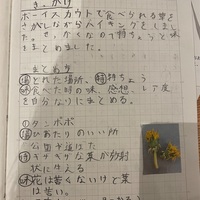 きっかけ
ボーイスカウトで食べられる草を
さがしながらハイキングをしまし
た。せっかくなので持ちょうと味
をまとめました。
まとめ方
場とれた場所、特持ちょう
味食べた時の味、感想、レア度
を自分なりにまとめる。
①タンポポ
場ひあたりのいい所
公園や道ばた
特ギザギザな葉が放射
状に生える
味花は苦くないけど葉
は苦い。